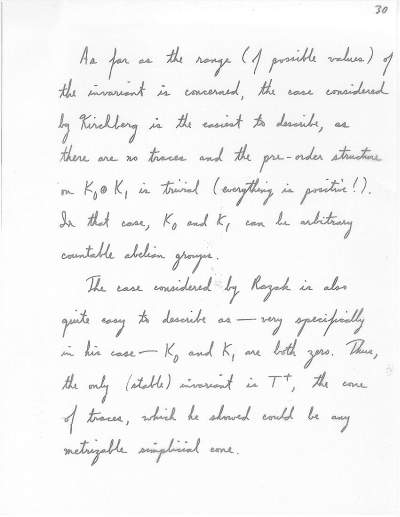 30
As far as the range (of possible values) of
the invariant is concerned, the case considered
by Kirchberg is the easiest to describe, as
there are no traces and the pre-order structure
on K₀⊕K₁ is trivial (everything is positive!).
In that case, K₀ and K₁ can be arbitrary
countable abelian groups.
The case considered by Razak is also
quite easy to describe as — very specifically
in his case — K₀ and K₁ are both zero. Thus,
the only (stable) invariant is T⁺, the cone
of traces, which he showed could be any
metrizable simplicial cone.